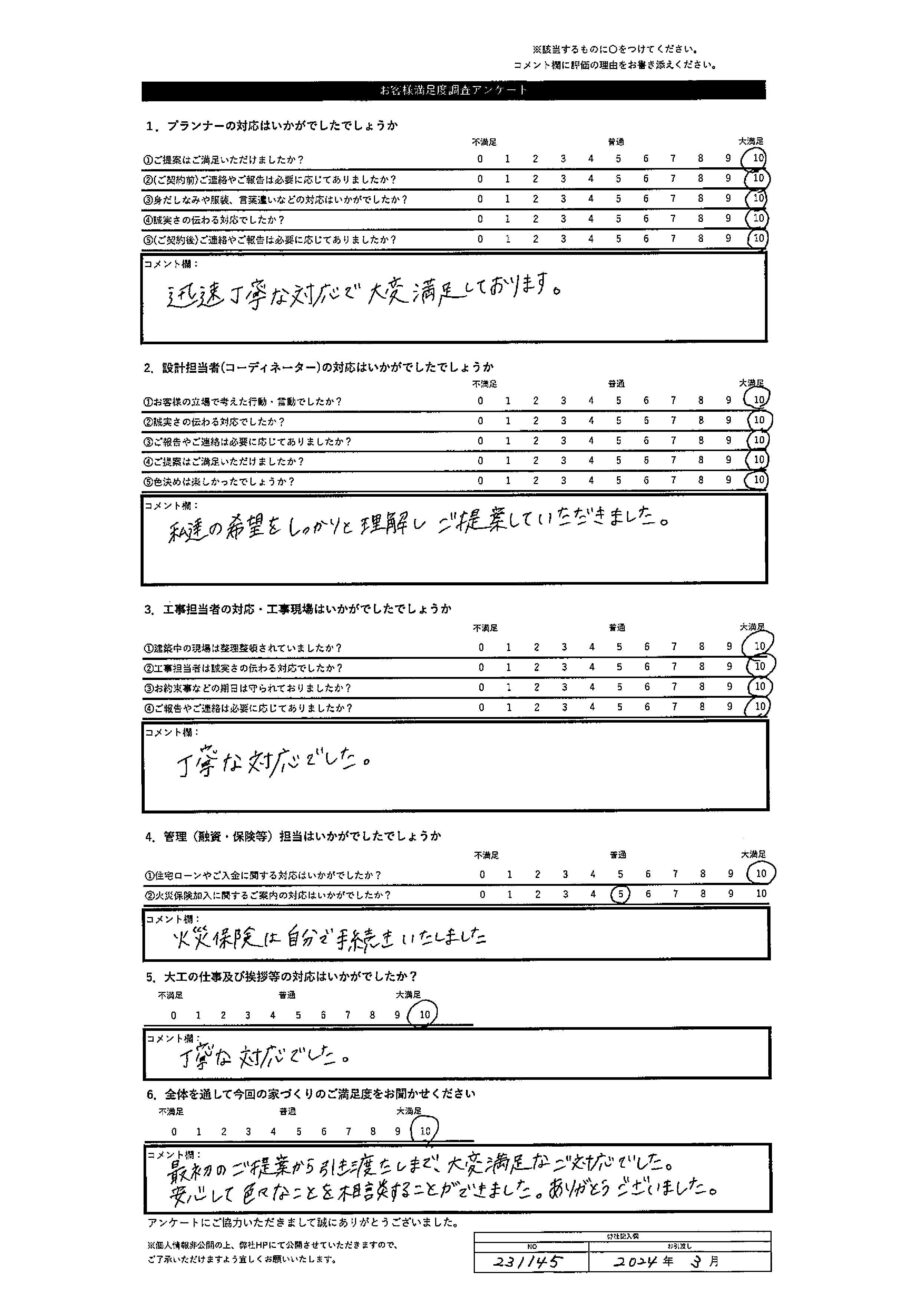 ※該当するものに〇をつけてください。
コメント欄に評価の理由をお書き添えください。
お客様満足度調査アンケート
1．プランナーの対応はいかがでしたでしょうか
不満足 普通 大満足
①ご提案はご満足いただけましたか？ 0 1 2 3 4 5 6 7 8 9 10
②(ご契約前)ご連絡やご報告は必要に応じてありましたか？ 0 1 2 3 4 5 6 7 8 9 10
③身だしなみや服装、言葉遣いなどの対応はいかがでしたか？ 0 1 2 3 4 5 6 7 8 9 10
④誠実さの伝わる対応でしたか？ 0 1 2 3 4 5 6 7 8 9 10
⑤(ご契約後)ご連絡やご報告は必要に応じてありましたか？ 0 1 2 3 4 5 6 7 8 9 10
コメント欄：
迅速丁寧な対応で大変満足しております。
2．設計担当者(コーディネーター)の対応はいかがでしたでしょうか
不満足 普通 大満足
①お客様の立場で考えた行動・言動でしたか？ 0 1 2 3 4 5 6 7 8 9 10
②誠実さの伝わる対応でしたか？ 0 1 2 3 4 5 6 7 8 9 10
③ご報告やご連絡は必要に応じてありましたか？ 0 1 2 3 4 5 6 7 8 9 10
④ご提案はご満足いただけましたか？ 0 1 2 3 4 5 6 7 8 9 10
⑤色決めは楽しかったでしょうか？ 0 1 2 3 4 5 6 7 8 9 10
コメント欄：
私達の希望をしっかりと理解しご提案していただきました。
3．工事担当者の対応・工事現場はいかがでしたでしょうか
不満足 普通 大満足
①建築中の現場は整理整頓されていましたか？ 0 1 2 3 4 5 6 7 8 9 10
②工事担当者は誠実さの伝わる対応でしたか？ 0 1 2 3 4 5 6 7 8 9 10
③お約束事などの期日は守られておりましたか？ 0 1 2 3 4 5 6 7 8 9 10
④ご報告やご連絡は必要に応じてありましたか？ 0 1 2 3 4 5 6 7 8 9 10
コメント欄：
丁寧な対応でした。
4．管理（融資・保険等）担当はいかがでしたでしょうか
不満足 普通 大満足
①住宅ローンやご入金に関する対応はいかがでしたか？ 0 1 2 3 4 5 6 7 8 9 10
②火災保険加入に関するご案内の対応はいかがでしたか？ 0 1 2 3 4 5 6 7 8 9 10
コメント欄：
火災保険は自分で手続きいたしました
5．大工の仕事及び挨拶等の対応はいかがでしたか？
不満足 普通 大満足
0 1 2 3 4 5 6 7 8 9 10
コメント欄：
丁寧な対応でした。
6．全体を通して今回の家づくりのご満足度をお聞かせください
不満足 普通 大満足
0 1 2 3 4 5 6 7 8 9 10
コメント欄：
最初のご提案から引き渡たしまで、大変満足なご対応でした。
安心して色々なことを相談することができました。ありがとうございました。
アンケートにご協力いただきまして誠にありがとうございました。
※個人情報非公開の上、弊社HPにて公開させていただきますので、
ご了承いただけますよう宜しくお願いいたします。
弊社記入欄
NO お引渡し
231145 2024年 3月